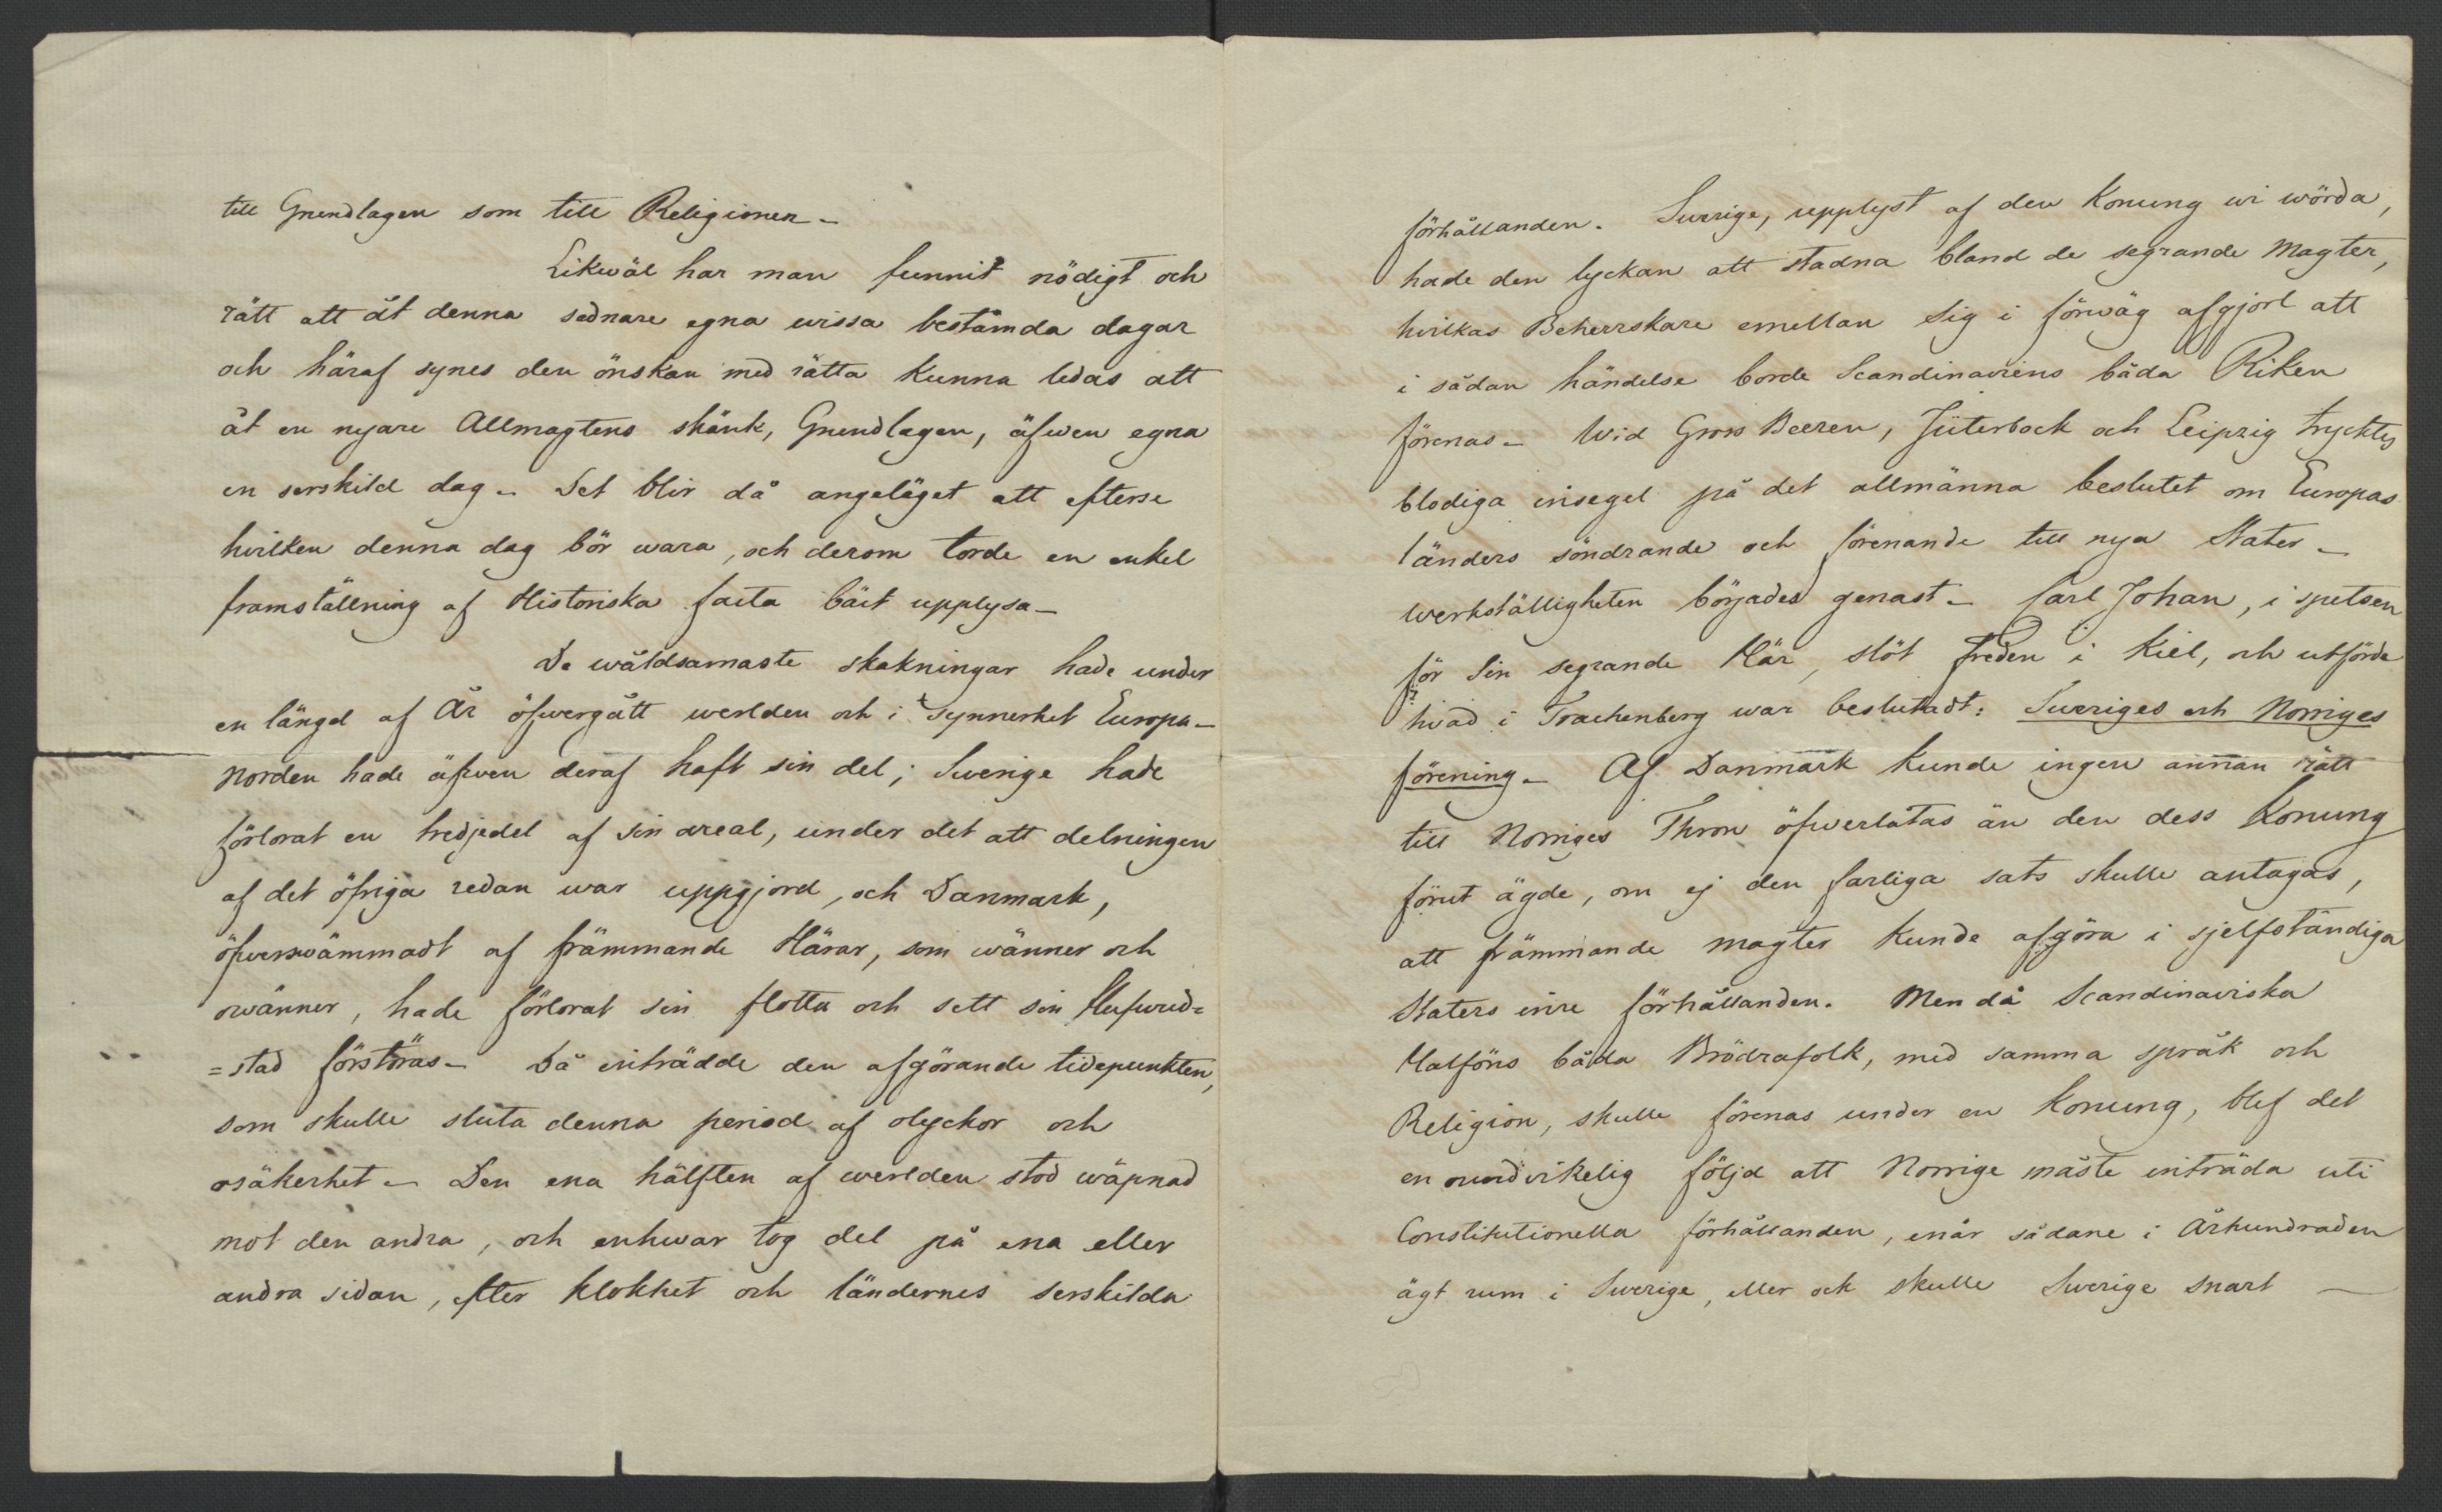 till Grundlagen som till Religionen –
Likwäl har man funnit nödigt och
rätt att åt denna sednare egna wissa bestämda dagar
och häraf synes den önskan med rätta kunna ledas att
åt en nyare Allmagtens skänk, Grundlagen, äfwen egna
en serskild dag – Det blir då angeläget att efterse
hvilken denna dag bör wara, och derom torde en enkel
framställning af Historiska facta bäst upplysa –
De wåldsamaste skakningar hade under
en längd af År öfwergått werlden och i Synnerhet Europa –
Norden hade äfwen deraf haft sin del; Swerige hade
förlorat en tredjedel af sin areal, under det att delningen
af det öfriga redan war uppgjord, och Danmark,
öfwerswämmadt af främmande Härar, som wänner och
owänner, hade förlorat sin flotta och sett sin Hufwud=
=stad förstöras – Då inträdde den afgörande tidepunkten,
som skulle sluta denna period af olyckor och
osäkerhet – Den ena hälften af werlden stod wäpnad
mot den andra, och enhwar tog del på ena eller
andra sidan, efter klokhet och ländernes serskilda
förhållanden. Swerige, upplyst af den Konung wi wörda,
hade den lyckan att stadna bland de segrande Magter,
hvilkas Beherrskare emellan Sig i förwäg afgjort att
i sådan händelse borde Scandinaviens båda Riken
förenas – Wid Gross Beeren, Jüterbock och Leipzig trycktes
blodiga insegel på det allmänna beslutet om Europas
länders söndrande och förenande till nya Stater –
Werkställigheten börjades genast – Carl Johan, i spetsen
för Sin segrande Här, slöt freden i Kiel, och utförde
hvad i Trachenberg war beslutadt: Sweriges och Norriges
förening – Af Danmark kunde ingen annan rätt
till Norriges Thron öfwerlåtas än den dess Konung
förut ägde, om ej den farliga sats skulle antagas,
att främmande magter kunde afgöra i sjelfständiga
Staters inre förhållanden. Men då Scandinaviska
Halföns båda Brödrafolk, med samma språk och
Religion, skulle förenas under en Konung, blef det
en oundvikelig följd att Norrige måste inträda uti
Constitutionella förhållanden, enär sådane i Århundraden
ägt rum i Swerige, eller ock skulle Swerige snart –